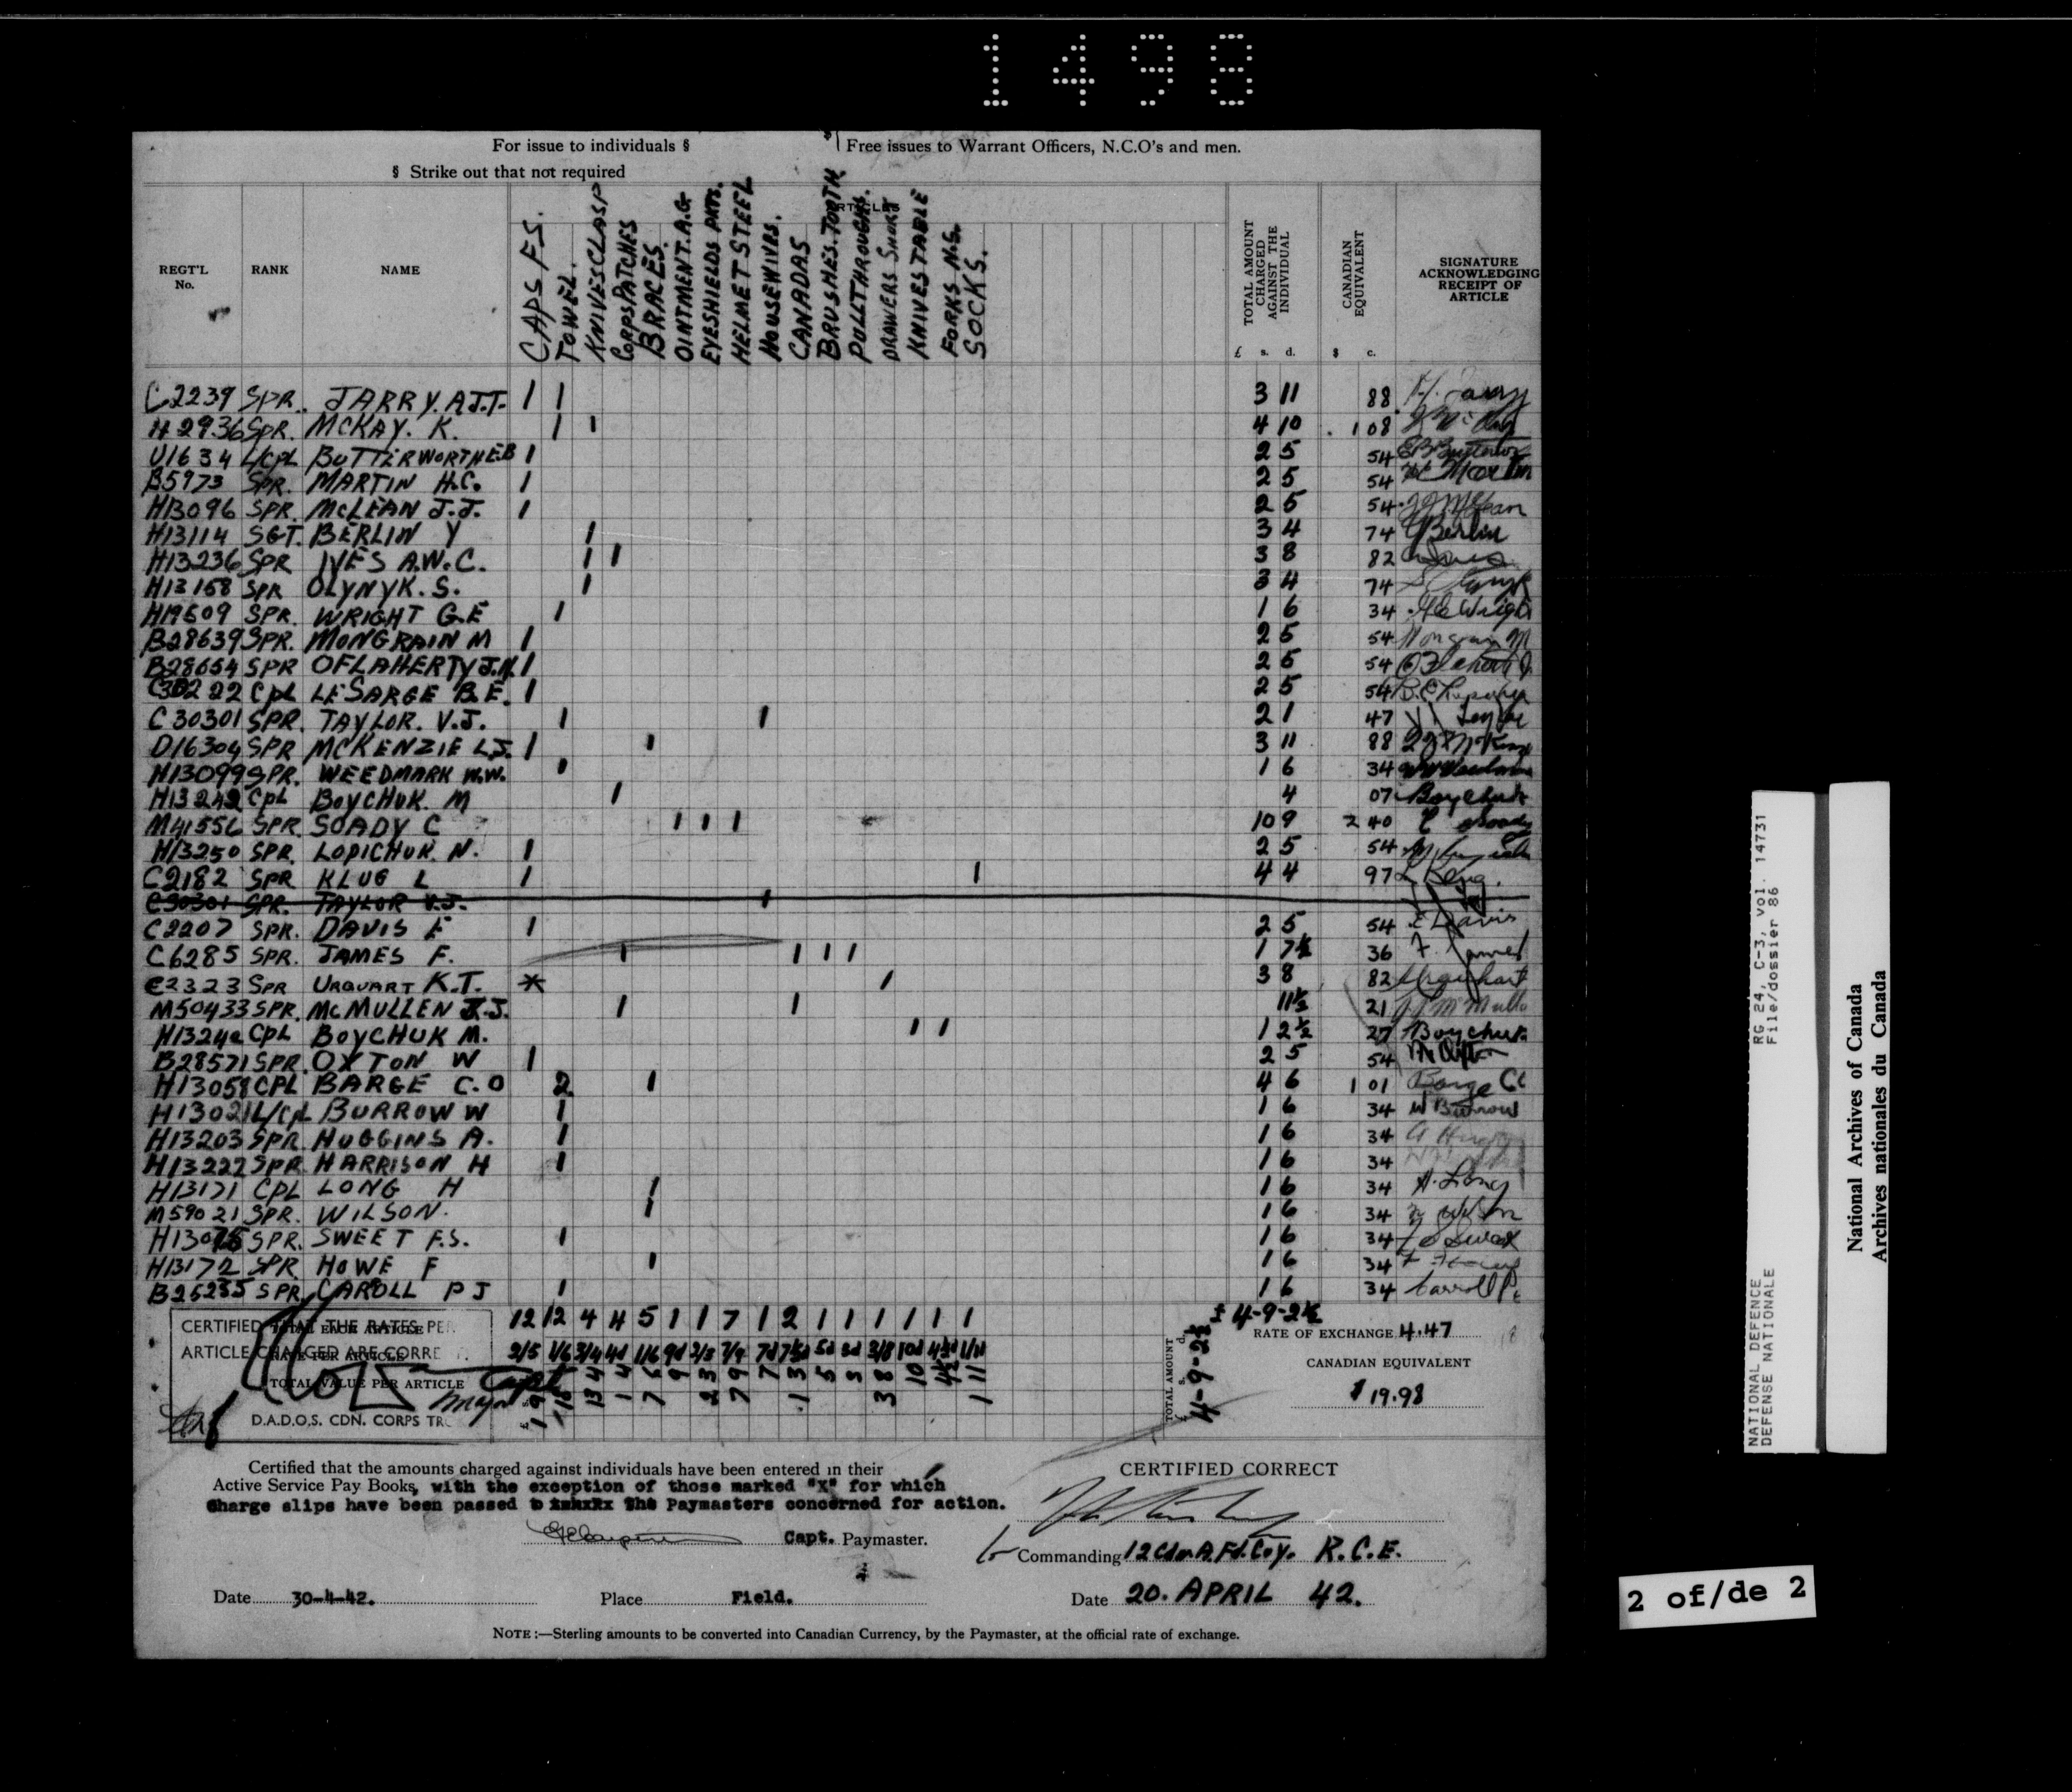 1498
For issue to individuals §
Free issues to Warrant Officers, N.C.O's and men.
§ Strike out that not required
REGT'L No.
RANK
NAME
ARTICLES
CAPS F.S.
TOWEL.
KNIVES CLASP
CORPS PATCHES
BRACES.
OINTMENT. A.G
EYESHIELDS PRTS.
HELMET STEEL
HOUSEWIVES.
CANADAS
BRUSHES. TOOTH
PULLTHROUGHS.
DRAWERS SHORT
KNIVES TABLE
FORKS N.S.
SOCKS.
TOTAL AMOUNT CHARGED AGAINST THE INDIVIDUAL
CANADIAN EQUIVALENT
SIGNATURE ACKNOWLEDGING RECEIPT OF ARTICLE
£ s. d. $ c.
C2239 SPR. JARRY. A.J.T. 1 1 3 11 88
H2936 SPR. MCKAY. K. 1 1 4 10 1 08
U1634 L/CPL BUTTERWORTH E.B 1 2 5 54
B5973 SPR. MARTIN H.C. 1 2 5 54 Martin
H13096 SPR. MCLEAN J.J. 1 2 5 54 J J McLean
H13114 SGT. BERLIN Y 1 3 4 74 Y Berlin
H13236 SPR IVES A.W.C. 1 1 3 8 82
H13158 SPR OLYNYK. S. 1 3 4 74
H19509 SPR. WRIGHT G.E 1 1 6 34 G E Wright
B28639 SPR. MONGRAIN M 1 2 5 54 Mongrain M
B28654 SPR OFLAHERTY J.N. 1 2 5 54
C30222 CPL LESARGE B.E. 1 2 5 54
C30301 SPR. TAYLOR. V.J. 1 1 2 1 47 V J Taylor
D16304 SPR MCKENZIE L.J. 1 1 3 11 88
H13099 SPR. WEEDMARK W.W. 1 1 6 34
H13242 CPL BOYCHUK. M 1 4 07 Boychuk
M41556 SPR. SOADY C 1 1 1 10 9 2 40 C Soady
H13250 SPR. LOPICHUK. N. 1 2 5 54
C2182 SPR KLUG L 1 1 4 4 97
C30301 SPR. TAYLOR V.J. 1
C2207 SPR. DAVIS E 1 2 5 54 E Davis
C6285 SPR. JAMES F. 1 1 1 1 1 7½ 36 F. James
C2323 SPR URQUART K.T. * 1 3 8 82 Urquhart
M50433 SPR. MCMULLEN J.J. 1 1 11½ 21
H13242 CPL BOYCHUK M. 1 1 1 2½ 27 Boychuk
B28571 SPR. OXTON W 1 2 5 54
H13058 CPL BARGE C.O 2 1 4 6 1 01 Barge
H13021 L/CPL BURROW W 1 1 6 34 W Burrow
H13203 SPR. HUGGINS A. 1 1 6 34
H13222 SPR. HARRISON H 1 1 6 34
H13171 CPL LONG H 1 1 6 34 H. Long
M59021 SPR. WILSON. 1 1 6 34 Wilson
H13075 SPR. SWEET F.S. 1 1 6 34 F S Sweet
H13172 SPR. HOWE F 1 1 6 34
B25235 SPR. CAROLL P J 1 1 6 34 Carroll P.
TOTAL EACH ARTICLE 12 12 4 4 5 1 1 7 1 2 1 1 1 1 1 1
£ 4-9-2½
RATE PER ARTICLE 2/5 1/6 3/4 4d 1/6 9d 2/3 7/9 7d 7½d 5d 3/8 10d 4½d 1/11
TOTAL VALUE PER ARTICLE
CERTIFIED THAT THE RATES PER
ARTICLE CHARGED ARE CORRECT.
Capt
D.A.D.O.S. CDN. CORPS TR
TOTAL AMOUNT £ s. d. 4-9-2½
RATE OF EXCHANGE 4.47
CANADIAN EQUIVALENT
$19.98
Certified that the amounts charged against individuals have been entered in their
Active Service Pay Books, with the exception of those marked "X" for which
Charge slips have been passed to the Paymasters concerned for action.
Capt. Paymaster.
CERTIFIED CORRECT
Commanding 12 Cdn A. Fd. Coy. R.C.E.
Date 30-4-42. Place Field. Date 20. APRIL 42.
NOTE:—Sterling amounts to be converted into Canadian Currency, by the Paymaster, at the official rate of exchange.
RG 24, C-3, vol. 14731
File/dossier 86
NATIONAL DEFENCE
DEFENSE NATIONALE
National Archives of Canada
Archives nationales du Canada
2 of/de 2